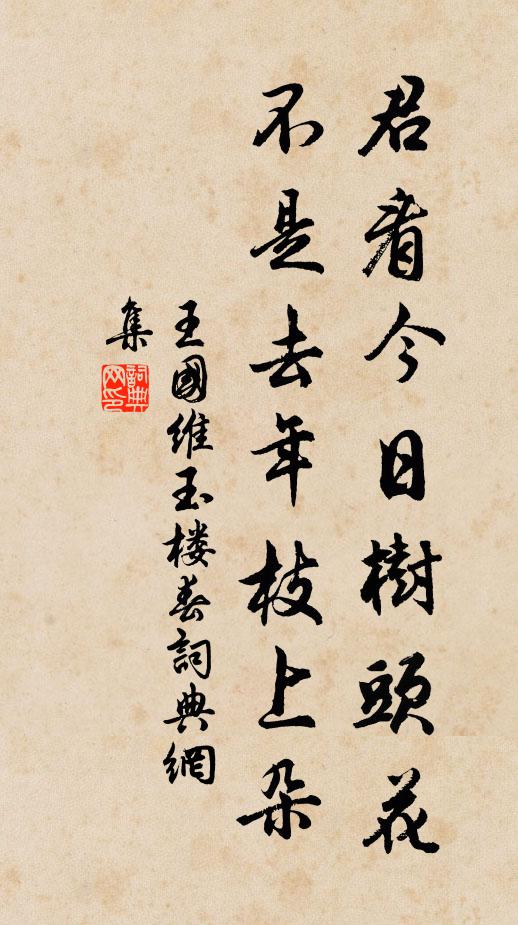 君看今日樹頭花
不是去年枝上朵
王國維玉楼春詞典網
集
詞典
网印